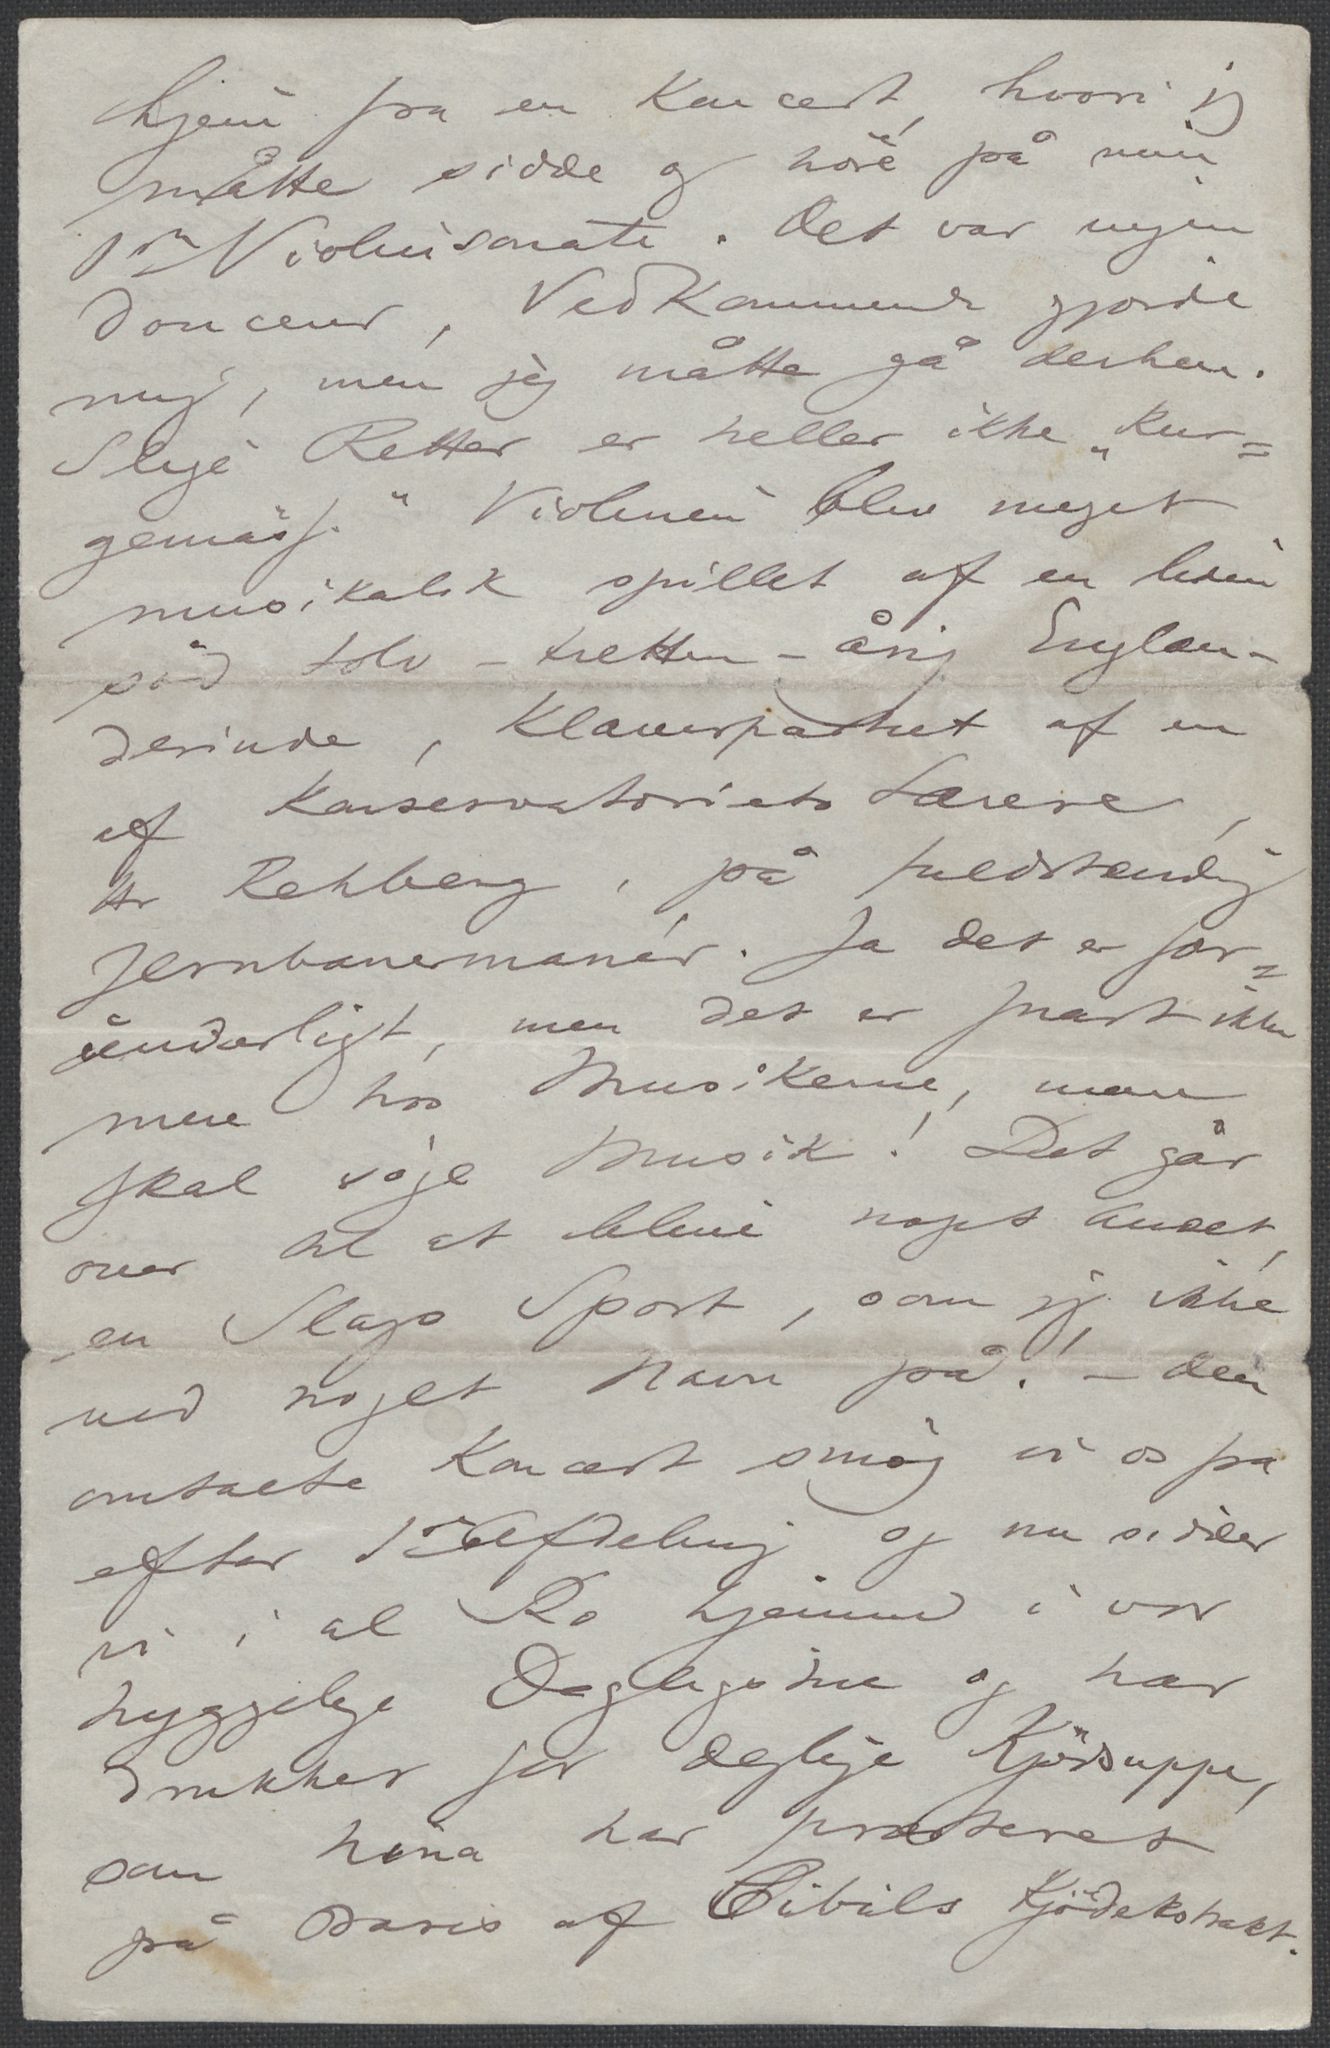 hjem fra en Koncert, hvori jeg
måtte sidde og höre på min
1ste Violinsonate. Det var ingen
Douceur, Vedkommende gjorde
mig, men jeg måtte gå derhen.
Slige Retter er heller ikke „kur=
gemäss." Violinen blev meget
musikalsk spillet af en liden
söd tolv-tretten-årig Englæn-
derinde, Klaverpartiet af en
af Konservatoriets Lærere,
Hr Rehberg, på fuldstændig
Jernbanermanér. Ja det er for=
underligt, men det er snart ikke
mere hos Musikerne, man
skal söge Musik! Det går
over til at blive noget Andet,
en Slags Sport, som jeg ikke
ved noget Navn på! – Den
omtalte Koncert smög vi os fra
efter 1ste Afdeling og nu sidder
vi i al Ro hjemme i vor
hyggelige Dagligstue og har
drukket for deglige Kjödsuppe,
som Nina har præsteret
på Basis af Cibils Kjödekstrakt.